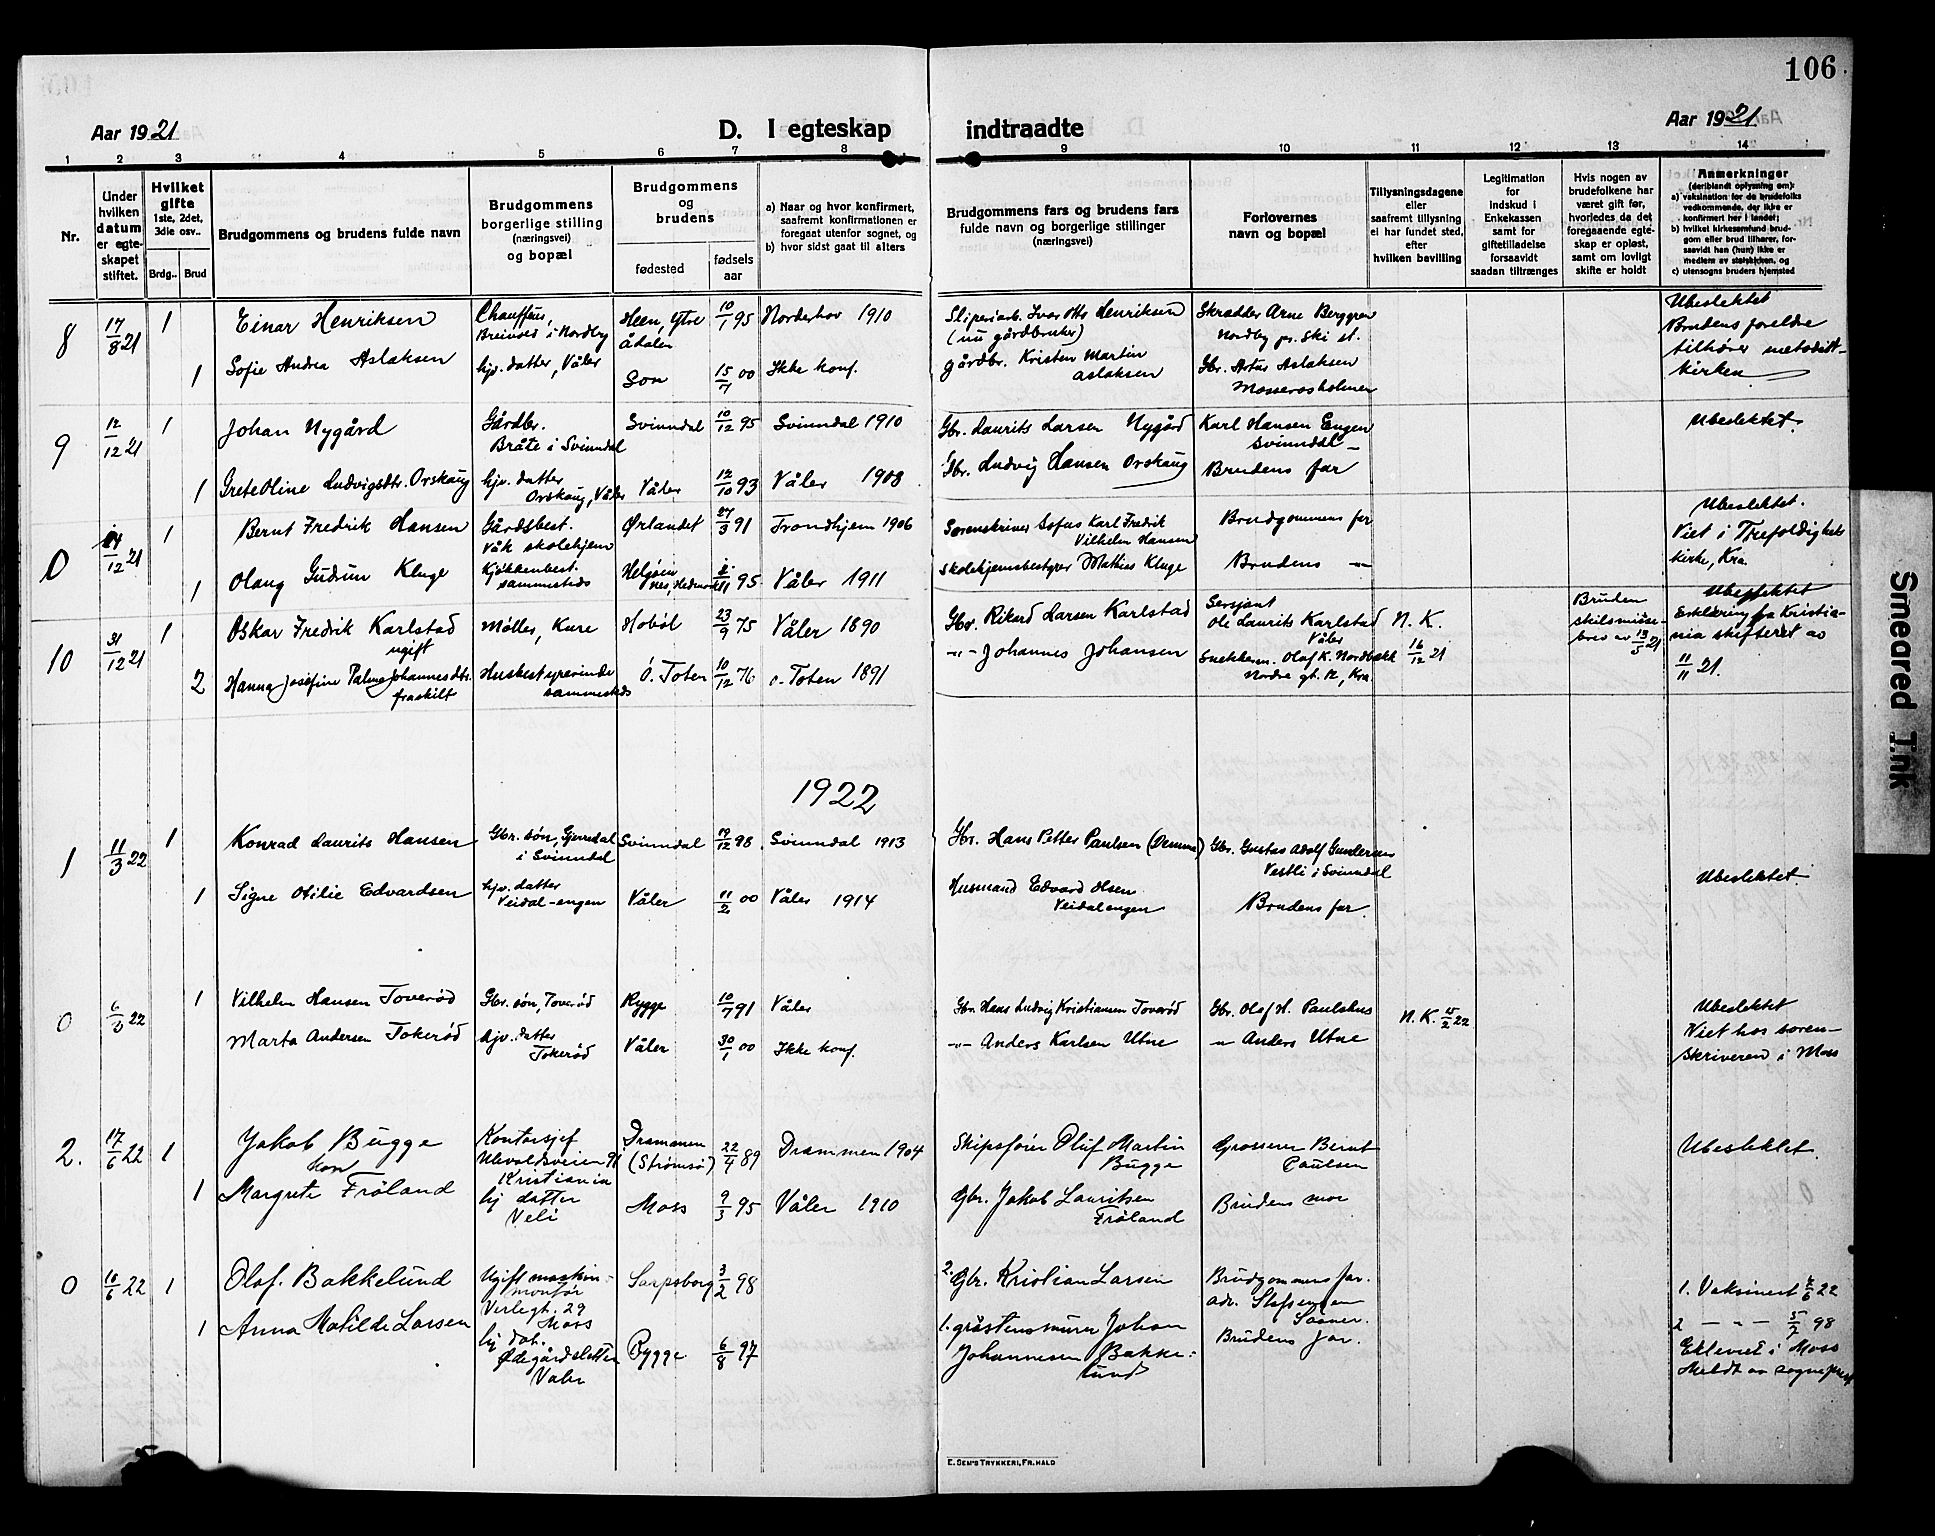 106
Aar 1921
D. I egteskap
indtraadte
Aar 1921
1 2 3 4 5 6 7 8 9 10 11 12 13 14
Nr.
Under hvilken datum er egteskapet stiftet.
Hvilket gifte 1ste, 2det, 3die osv..
Brdg.. Brud
Brudgommens og brudens fulde navn
Brudgommens borgerlige stilling (næringsvei) og bopæl
Brudgommens og brudens
fødested
fødsels aar
a) Naar og hvor konfirmert, saafremt konfirmationen er foregaat utenfor sognet, og
b) hvor sidst gaat til alters
Brudgommens fars og brudens fars fulde navn og borgerlige stillinger (næringsvei)
Forlovernes navn og bopæl
Tillysningsdagene eller saafremt tillysning ei har fundet sted, efter hvilken bevilling
Legitimation for indskud i Enkekassen samt for giftetilladelse forsaavidt saadan tiltrænges
Hvis nogen av brudefolkene har været gift før, hvorledes da det foregaaende egteskap er opløst, samt om lovligt skifte er holdt
Anmerkninger
(deriblandt oplysning om):
a) vaksination for de brudefolks vedkommende, der ikke er konfirmert her i landet;
b) hvilket kirkesamfund brudgom eller brud tilhører, forsaavidt han (hun) ikke er medlem av statskirken, og
c) utensogns bruders hjemsted
8 17/8 21 1 Einar Henriksen Chauffør, Breivold i Nordby Heen, Ytre Ådalen 10/1 95 Norderhov 1910 Sliperiarb. Ivar Ots Henriksen (nu gårdbruker) Skrædder Arne Berggren Nordby pr. Ski st. Ubeslektet
Brudens foreldre tilhører metodistkirken
1 Sofie Andrea Aslaksen hjv. datter, Våler Son 15/7 00 Ikke konf. gårdbr. Kristen Martin Aslaksen Gbr. Artur Aslaksen Mosserosholmen
9 12/12 21 1 Johan Nygård Gårdbr. Bråte i Svinndal Svinndal 10/12 95 Svinndal 1910 Gbr. Laurits Larsen Nygård Karl Hansen Engen Svinndal Ubeslektet.
1 Grete Oline Ludvigsdtr. Orskaug hjv. datter Orskaug, Våler Våler 12/10 93 Våler 1908 Gbr. Ludvig Hansen Orskaug Brudens far
0 /12 21 1 Bernt Fredrik Hansen Gårdsbest. Våk skolehjem Ørlandet 27/3 91 Trondhjem 1906 Sorenskriver Sofus Karl Fredrik Vilhelm Hansen Brudgommens far Ubeslektet.
Viet i Trefoldighets kirke, Kra.
1 Olaug Gudrun Kluge Kjøkkenbest. sammesteds Helgøen Nes, Hedmark /11 95 Våler 1911 Skolehjemsbestyrer Mathias Kluge Brudens "
10 31/12 21 1 Oskar Fredrik Karlstad ugift Møller, Kure Hobøl 23/9 75 Våler 1890 Gbr. Rikard Larsen Karlstad Sersjant Ole Laurits Karlstad Våler N. K. 16/12 21 Bruden skilsmissebrev av 13/5 21 Ubeslektet
Erklæring fra Kristiania skifteret av 11/11 21.
2 Hanna Josefine Palma Johannesdtr. fraskilt Husbestyrerinde sammesteds Ö. Toten 10/12 76 Ö. Toten 1891 -"- Johannes Johansen Snekkerm. Olaf K. Nordbakk Nordre gt. 12, Kra.
1922
1 11/3 22 1 Konrad Laurits Hansen Gbr. søn, Gjerredal i Svinndal Svinndal 19/12 98 Svinndal 1913 Gbr. Hans Petter Paulsen Gbr. Gustav Adolf Gundersen Vestli i Svinndal Ubeslektet.
1 Signe Otilie Edvardsen hjv. datter Veidal-engen Våler 11/2 00 Våler 1914 Husmand Edvard Olsen Veidalengen Brudens far.
0 6/3 22 1 Vilhelm Hansen Toverød Gbr. søn, Toverød Rygge 10/7 91 Våler Gbr. Hans Ludvig Kristiansen Toverød Gbr. Olaf H. Paulshus N. K. 15/2 22 Ubeslektet
Viet hos sorenskriveren i Moss
Marta Andersen Tokerød hjv. datter Tokerød Våler 30/1 00 Ikke konf. -"- Anders Karlsen Utne " Anders Utne
2. 17/6 22 1 Jakob Bugge Kontorsjef Ullevålsveien 91 Kristiania Drammen (Strømsø) 22/4 89 Drammen 1904 Skipsfører Oluf Martin Bugge Grosserer Bernt Paulsen Ubeslektet.
1 Margrete Frøland hj datter Veli Moss 9/3 95 Våler 1910 Gbr. Jakob Lauritsen Frøland Brudens mor
0 10/6 22 1 Olaf. Bakkelund Ugift maskinmontør Verlegt. 29 Moss Sarpsborg 3/2 98 2. Gbr. Kristian Larsen Brudgommens far. adr. Stefsengen Saaner. 1. Vaksinert 22
2 - " - 5/7 98
Ekteviet i Moss
Meldt av sogneprest
1 Anna Matilde Larsen hj dat. Ødegårdsletten Våler Rygge 6/8 97 1. gråstensmurer Johan Johannesen Bakkelund Brudens far.
E. SEM'S TRYKKERI, FR.HALD
Smeared Ink